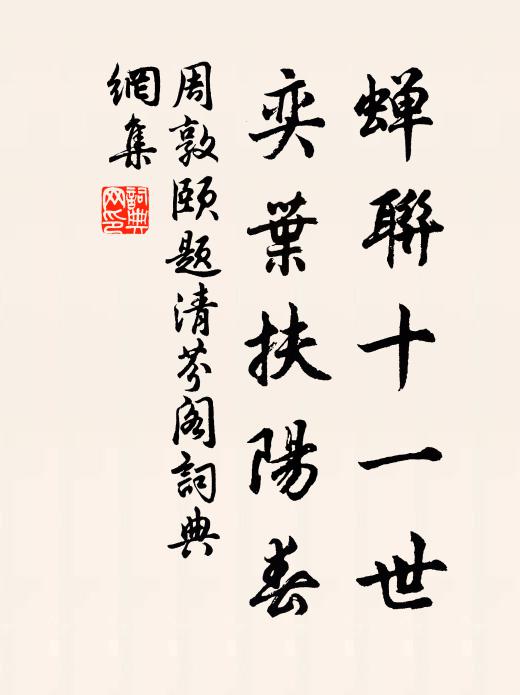 蝉聯十一世
奕葉扶陽春
周敦頤題清芬阁詞典
網集
詞典网印